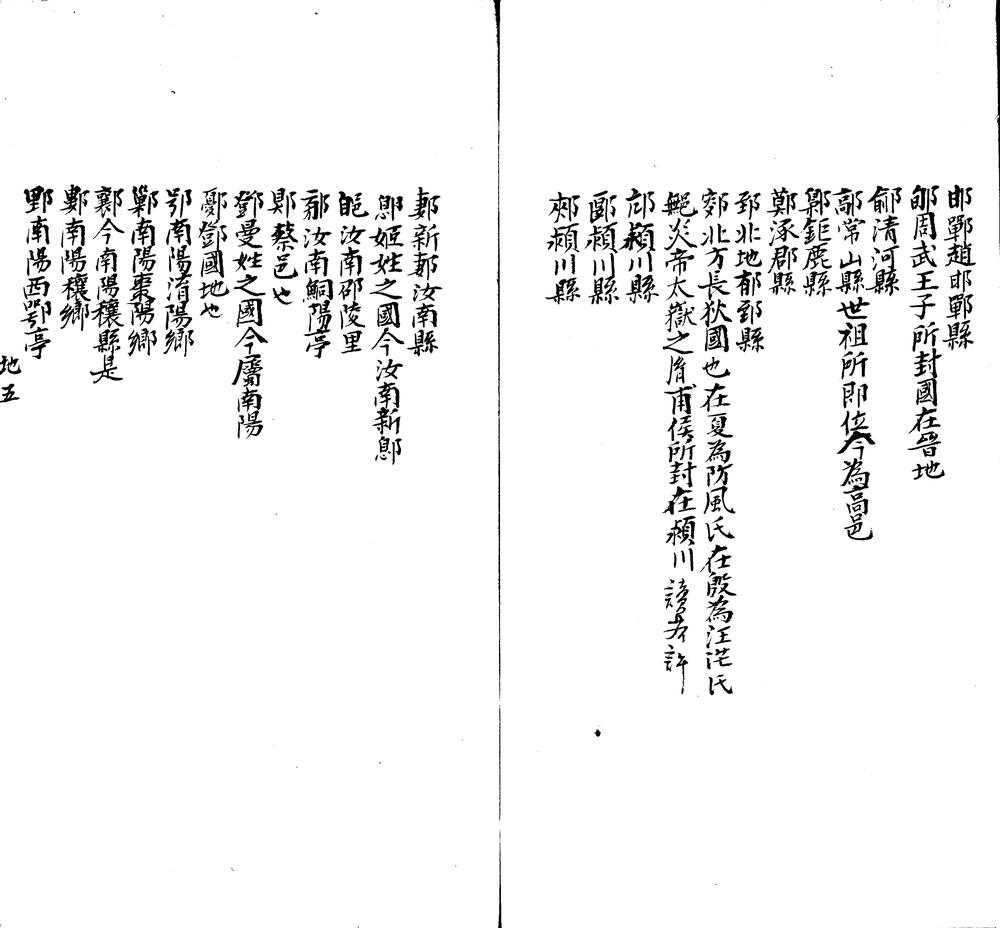 邯鄲趙邯鄲縣
郇周武王子所封國在晉地
鄃清河縣
鄗常山縣世祖所即位今為高邑
鄡鉅鹿縣
鄚涿郡縣
郅北地郁郅縣
鄋北方長狄國也在夏為防風氏在殷為汪茫氏
鄦炎帝太嶽之胤甫侯所封在潁川讀若許
邟潁川縣
郾潁川縣
郟潁川縣
郪新郪汝南縣
鄎姬姓之國今汝南新鄎
郋汝南邵陵里
䣊汝南鮦陽亭
郹蔡邑也
鄧曼姓之國今屬南陽
鄾鄧國地也
鄂南陽淯陽鄉
鄛南陽棗陽鄉
鄴今南陽穰縣是
䣚南陽穰鄉
郢南陽西鄂亭
地五